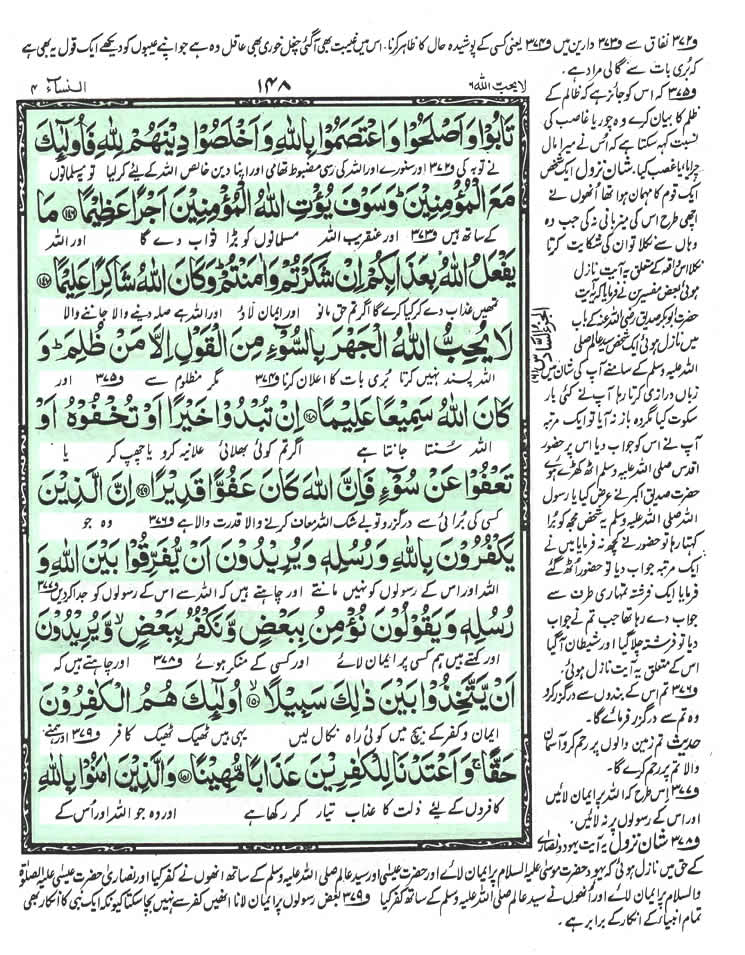 و۳۷۲ نفاق سے و۳۷۳ دارین میں و۳۷۴ یعنی کسی کے پوشیدہ حال کا ظاہر کرنا۔ اس میں غیبت بھی آگئی چغل خوری بھی عاقل وہ ہے جو اپنے عیبوں کو دیکھے ایک قول یہ بھی ہے
کہ بُری بات سے گالی مراد ہے۔
لا یحب اللہ ۶
۱۴۸
النساء ۴
تَابُوْا وَاَصْلَحُوْا وَاعْتَصَمُوْا بِاللّٰهِ وَاَخْلَصُوْا دِيْنَهُمْ لِلّٰهِ فَاُولٰٓئِكَ
نے توبہ کی و۳۷۲ اور سنورے اور اللہ کی رسی مضبوط تھامی اور اپنا دین خالص اللہ کے لیے کرلیا تو یہ مسلمانوں
مَعَ الْمُؤْمِنِيْنَ ؕ وَسَوْفَ يُؤْتِ اللّٰهُ الْمُؤْمِنِيْنَ اَجْرًا عَظِيْمًا ۝۱۴۶ مَا
کے ساتھ ہیں و۳۷۳ اور عنقریب اللہ مسلمانوں کو بڑا ثواب دے گا اور اللہ
يَفْعَلُ اللّٰهُ بِعَذَابِكُمْ اِنْ شَكَرْتُمْ وَاٰمَنْتُمْ ؕ وَكَانَ اللّٰهُ شَاكِرًا عَلِيْمًا ۝۱۴۷
تمہیں عذاب دے کر کیا کرے گا اگر تم حق مانو اور ایمان لاؤ اور اللہ ہے صلہ دینے والا جاننے والا
لَا يُحِبُّ اللّٰهُ الْجَهْرَ بِالسُّوْٓءِ مِنَ الْقَوْلِ اِلَّا مَنْ ظُلِمَ ؕ وَ
اللہ پسند نہیں کرتا بُری بات کا اعلان کرنا و۳۷۴ مگر مظلوم سے و۳۷۵ اور
كَانَ اللّٰهُ سَمِيْعًا عَلِيْمًا ۝۱۴۸ اِنْ تُبْدُوْا خَيْرًا اَوْ تُخْفُوْهُ اَوْ
اللہ سُنتا جانتا ہے اگر تم کوئی بھلائی علانیہ کرو یا چھپ کر یا
تَعْفُوْا عَنْ سُوْٓءٍ فَاِنَّ اللّٰهَ كَانَ عَفُوًّا قَدِيْرًا ۝۱۴۹ اِنَّ الَّذِيْنَ
کسی کی بُرائی سے درگزر و تو بے شک اللہ معاف کرنے والا قدرت والا ہے و۳۷۶ وہ جو
يَكْفُرُوْنَ بِاللّٰهِ وَرُسُلِهٖ وَيُرِيْدُوْنَ اَنْ يُّفَرِّقُوْا بَيْنَ اللّٰهِ وَ
اللہ اور اس کے رسولوں کو نہیں مانتے اور چاہتے ہیں کہ اللہ سے اس کے رسولوں کو جدا کردیں و۳۷۷
رُسُلِهٖ وَيَقُوْلُوْنَ نُؤْمِنُ بِبَعْضٍ وَّنَكْفُرُ بِبَعْضٍ ۙ وَّيُرِيْدُوْنَ
اور کہتے ہیں ہم کسی پر ایمان لائے اور کسی کے منکر ہوئے و۳۷۸ اور چاہتے ہیں کہ
اَنْ يَّتَّخِذُوْا بَيْنَ ذٰلِكَ سَبِيْلًا ۝۱۵۰ اُولٰٓئِكَ هُمُ الْكٰفِرُوْنَ
ایمان و کفر کے بیچ میں کوئی راہ نکال لیں یہی ہیں ٹھیک ٹھیک کافر و۳۷۹ اور ہم نے
حَقًّا ۚ وَاَعْتَدْنَا لِلْكٰفِرِيْنَ عَذَابًا مُّهِيْنًا ۝۱۵۱ وَالَّذِيْنَ اٰمَنُوْا بِاللّٰهِ
کافروں کے لیے ذلت کا عذاب تیار کر رکھا ہے اور وہ جو اللہ اور اُس کے
الجزء السادس (۶)
و۳۷۵ کہ اس کو جائز ہے کہ ظالم کے
ظلم کا بیان کرے وہ چور یا غاصب کی
نسبت کہہ سکتا ہے کہ اُس نے میرا مال
چرایا یا غصب کیا۔ شان نزول ایک شخص
ایک قوم کا مہمان ہوا تھا اُنھوں نے
اچھی طرح اس کی میزبانی نہ کی جب وہ
وہاں سے نکلا تو ان کی شکایت کرتا
نکلا اس واقعہ کے متعلق یہ آیت نازل
ہوئی بعض مفسرین نے فرمایا کہ یہ آیت
حضرت ابوبکر صدیق رضی اللہ عنہ کے باب
میں نازل ہوئی ایک شخص سید عالم صلی
اللہ علیہ وسلم کے سامنے آپ کی شان میں
زباں درازی کرتا رہا آپ نے کئی بار
سکوت کیا مگر وہ باز نہ آیا تو ایک مرتبہ
آپ نے اس کو جواب دیا اس پر حضور
اقدس صلی اللہ علیہ وسلم اٹھ کھڑے ہوئے
حضرت صدیق اکبر نے عرض کیا یا رسول
اللہ صلی اللہ علیہ وسلم یہ شخص مجھ کو بُرا
کہتا رہا تو حضور نے کچھ نہ فرمایا میں نے
ایک مرتبہ جواب دیا تو حضور اُٹھ گئے
فرمایا ایک فرشتہ تمہاری طرف سے
جواب دے رہا تھا جب تم نے جواب
دیا تو فرشتہ چلا گیا اور شیطان آگیا
اس کے متعلق یہ آیت نازل ہوئی۔
و۳۷۶ تم اس کے بندوں سے درگزر کرو
وہ تم سے درگزر فرمائے گا۔
حدیث تم زمین والوں پر رحم کرو آسمان
والا تم پر رحم کرے گا۔
و۳۷۷ اِس طرح کہ اللہ پر ایمان لائیں
اور اس کے رسولوں پر نہ لائیں۔
و۳۷۸ شان نزول یہ آیت یہود و نصاریٰ
کے حق میں نازل ہوئی کہ یہود حضرت موسیٰ علیہ السلام پر ایمان لائے اور حضرت عیسیٰ اور سید عالم صلی اللہ علیہ وسلم کے ساتھ انھوں نے کفر کیا اور نصاریٰ حضرت عیسیٰ علیہ الصلوٰۃ
والسلام پر ایمان لائے اور اُنھوں نے سید عالم صلی اللہ علیہ وسلم کے ساتھ کفر کیا و۳۷۹ بعض رسولوں پر ایمان لانا انھیں کفر سے نہیں بچا سکتا کیونکہ ایک نبی کا انکار بھی
تمام انبیاء کے انکار کے برابر ہے۔